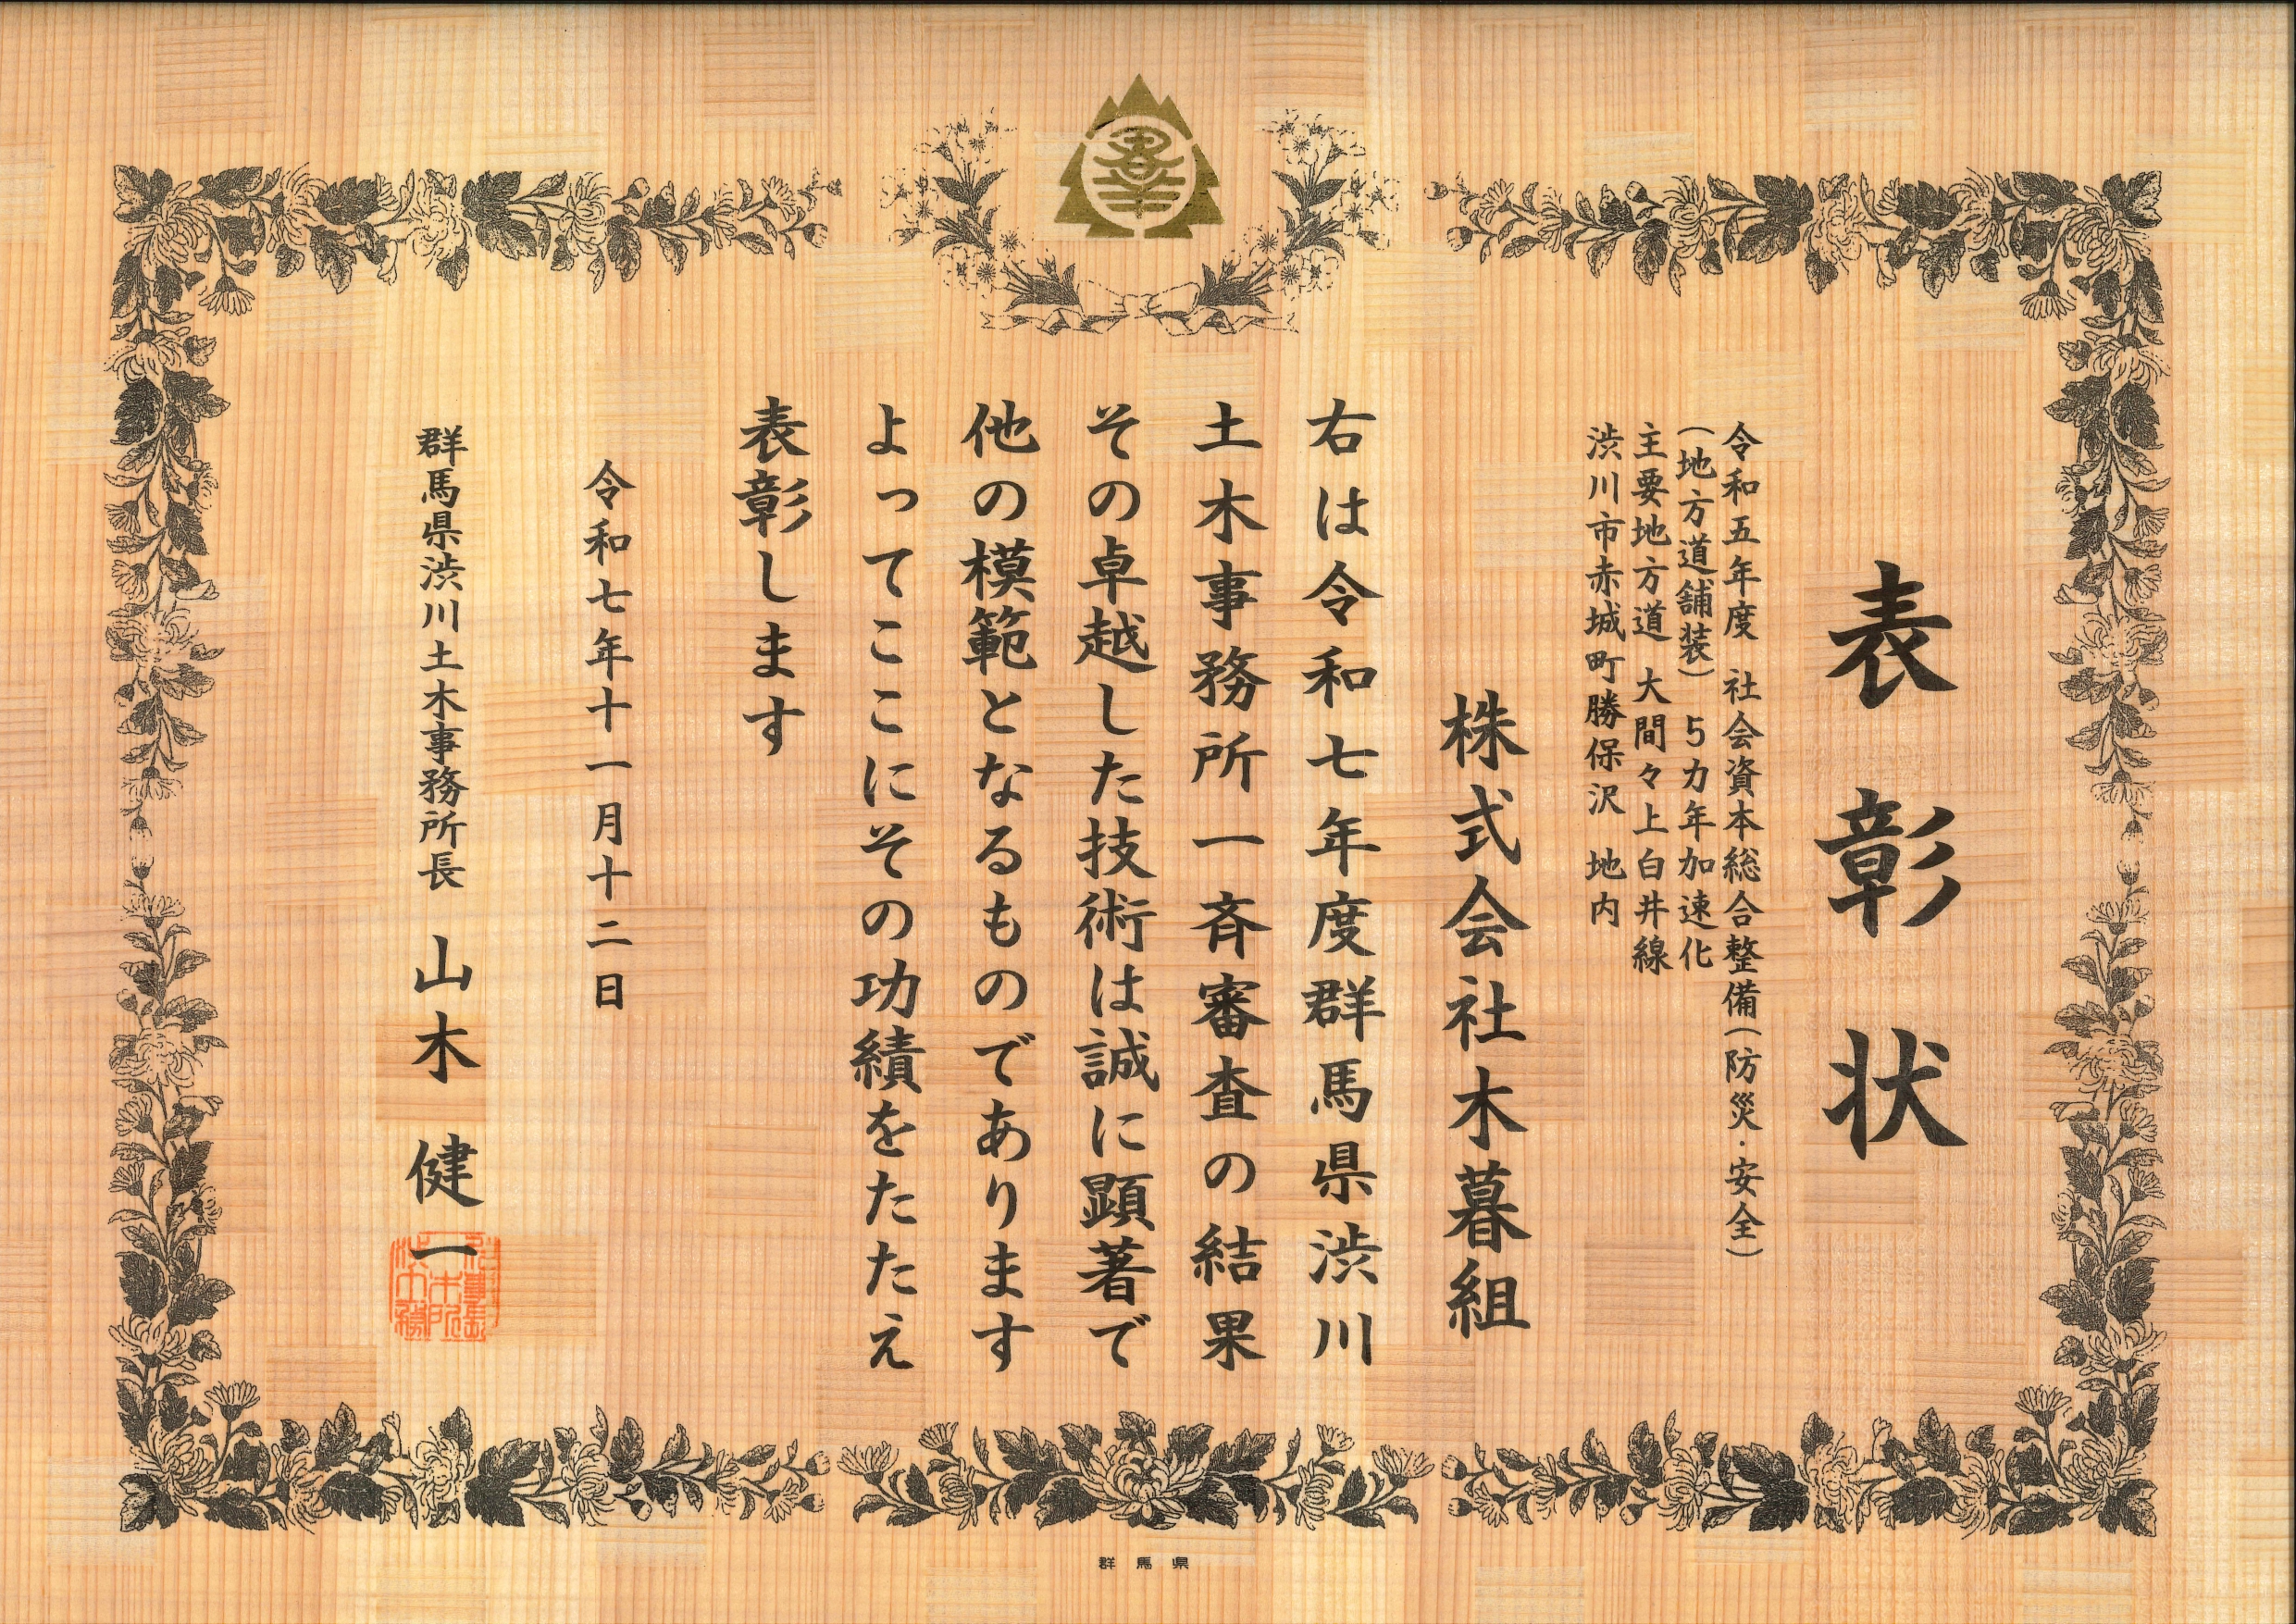 表彰状
令和五年度 社会資本総合整備(防災・安全)
(地方道舗装) 5カ年加速化
主要地方道 大間々上白井線
渋川市赤城町勝保沢 地内
株式会社木暮組
右は令和七年度群馬県渋川
土木事務所一斉審査の結果
その卓越した技術は誠に顕著で
他の模範となるものであります
よってここにその功績をたたえ
表彰します
令和七年十一月十二日
群馬県渋川土木事務所長 山木 健一
群馬県